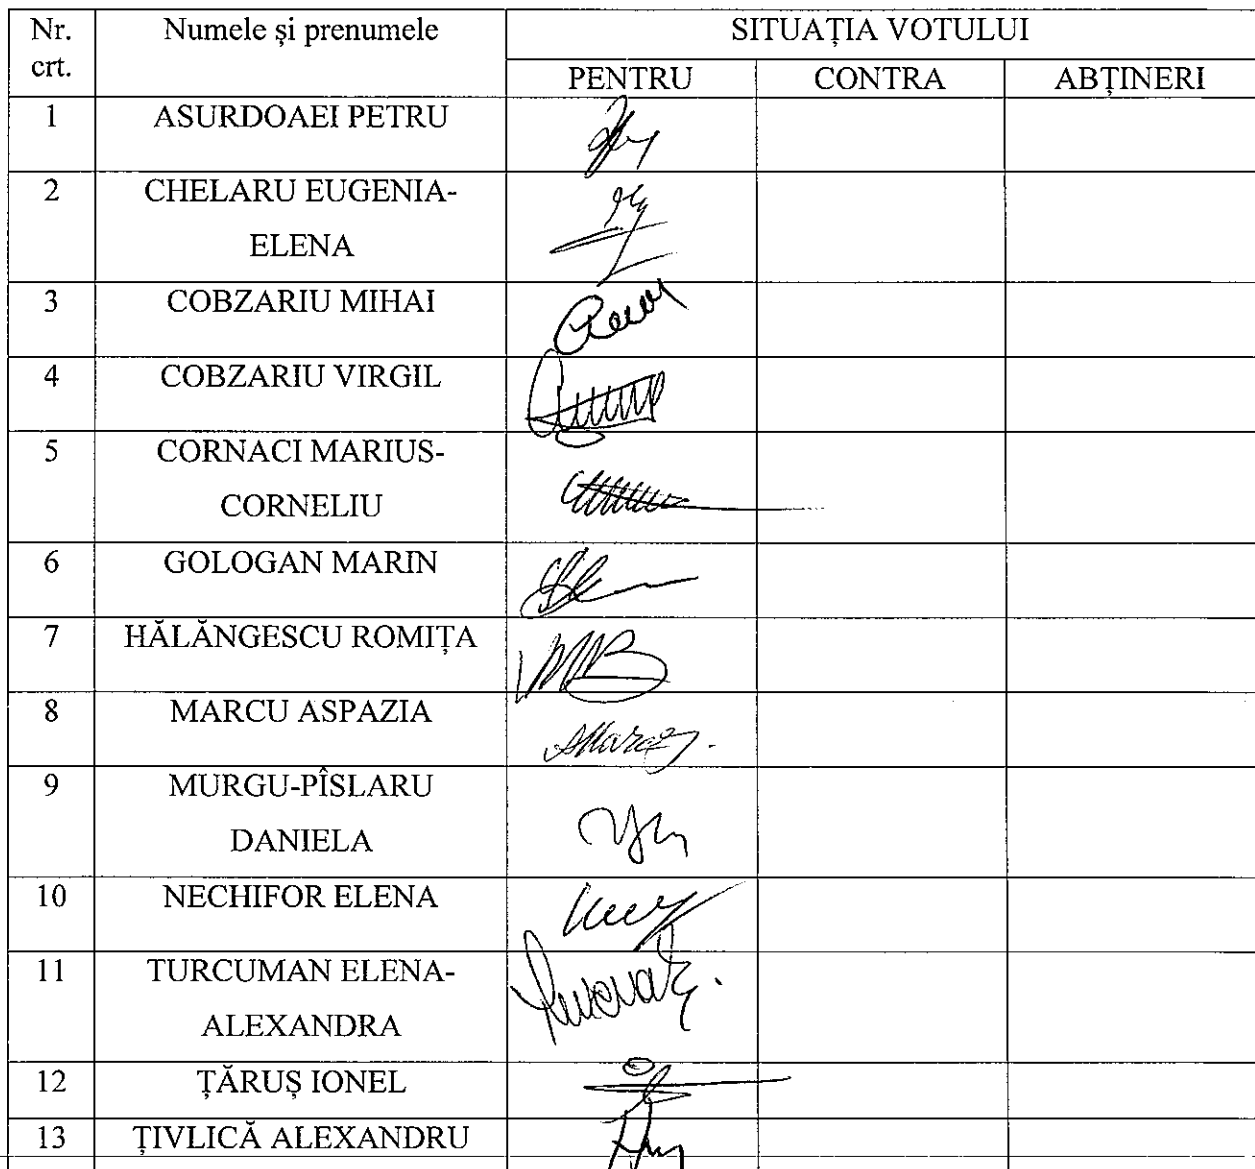 Nr. Numele și prenumele SITUAȚIA VOTULUI
crt.
PENTRU CONTRA ABȚINERI
1 ASURDOAEI PETRU
2 CHELARU EUGENIA-
ELENA
3 COBZARIU MIHAI
4 COBZARIU VIRGIL
5 CORNACI MARIUS-
CORNELIU
6 GOLOGAN MARIN
7 HĂLĂNGESCU ROMIȚA
8 MARCU ASPAZIA
9 MURGU-PÎSLARU
DANIELA
10 NECHIFOR ELENA
11 TURCUMAN ELENA-
ALEXANDRA
12 ȚĂRUȘ IONEL
13 ȚIVLICĂ ALEXANDRU